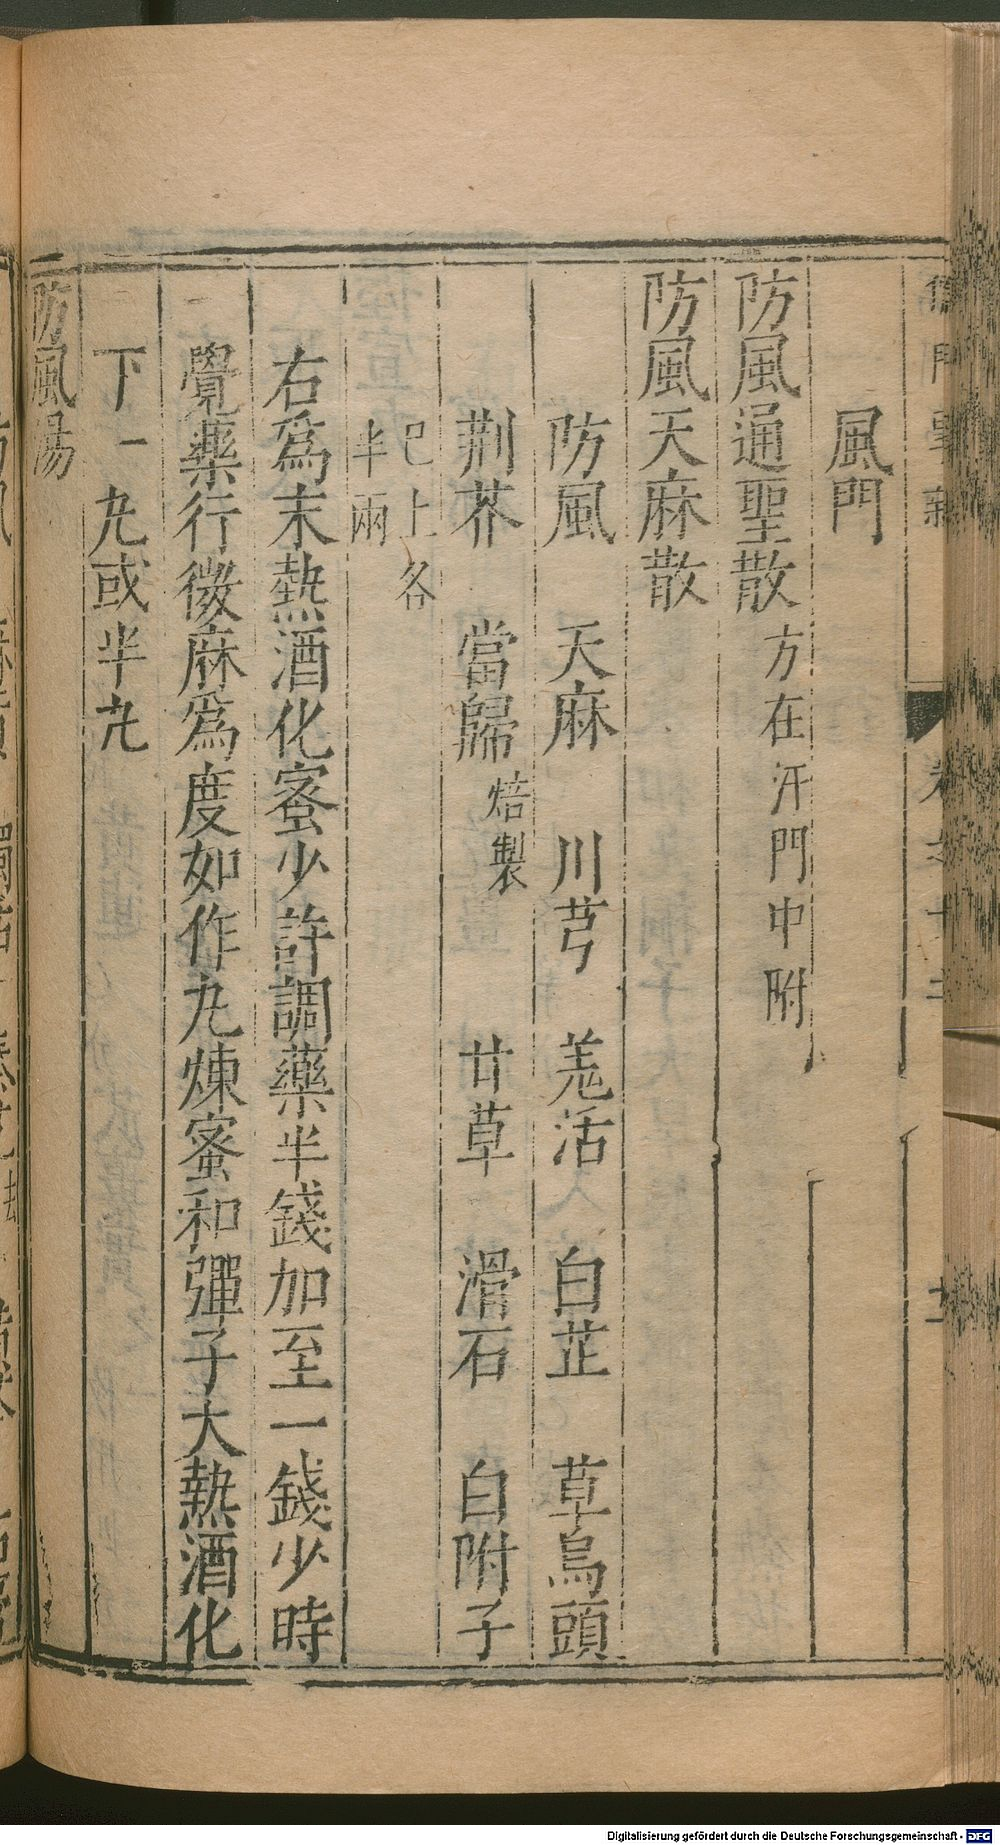 風門
防風通聖散方在汗門中附
防風天麻散
防風 天麻 川芎 羗活 白芷 草烏頭
荆芥 當歸焙製 甘草 滑石 白附子
已上各
半兩
右爲末熱酒化蜜少許調藥半錢加至一錢少時
覺藥行微麻爲度如作丸煉蜜和彈子大熱酒化
下一丸或半丸
防風湯
Digitalisierung gefördert durch die Deutsche Forschungsgemeinschaft - DFG